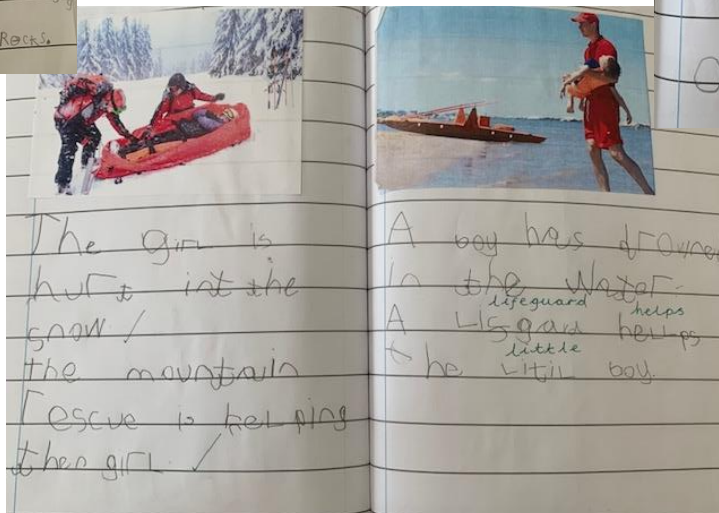 Rocks.
The girl is
hurt int the
snow /
the mountain
rescue is helping
then girl. ✓
A boy has drowne
in the Water.
lifeguard helps
A Lisgard hellps
little
the Litil boy.